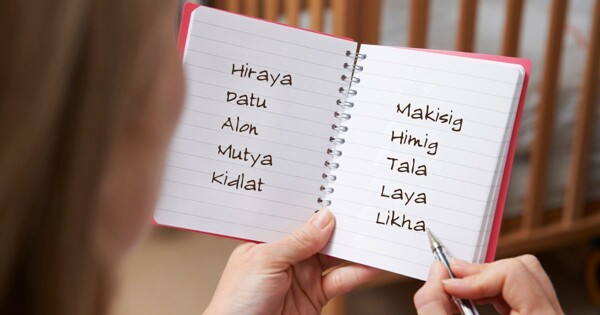 Hiraya
Datu
Alon
Mutya
Kidlat
Makisig
Himig
Tala
Laya
Likha